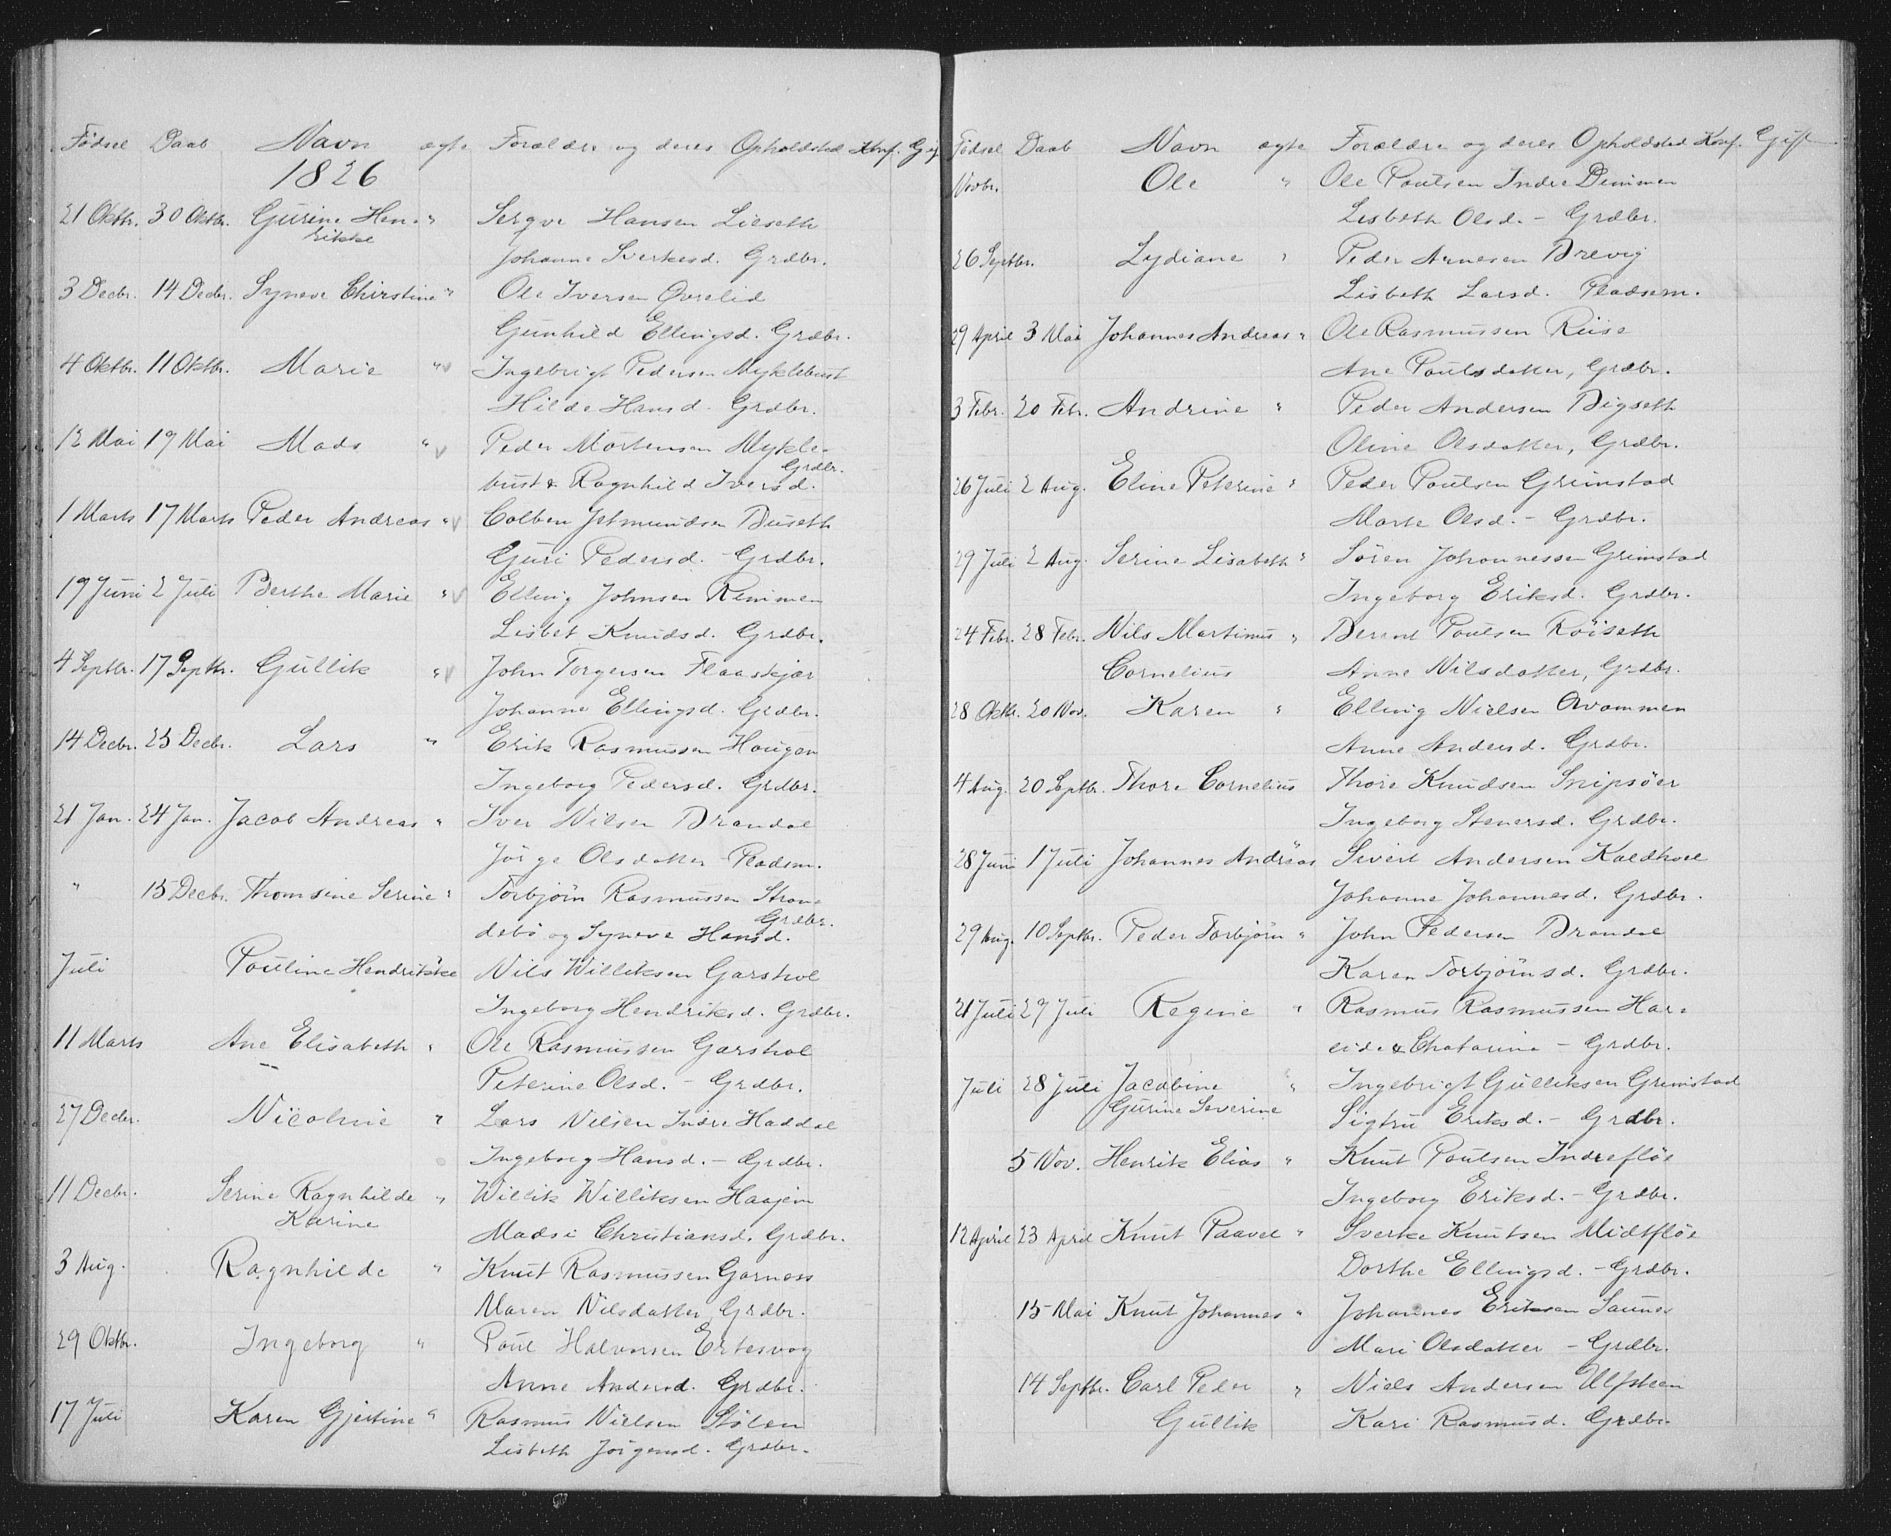 Fødsel Daab Navn ægte Forældre og deres Opholdsted Konf. Gif
1826
21 Oktbr. 30 Oktbr. Gurine Hen- " Serqve Hansen Lieseth
rikke
Johanne Sverkesd. Grdbr.
3 Decbr. 14 Decbr. Syneve Chirstine " Ole Iversen Øvrelid
Gunhild Ellingsd. Grdbr.
4 Oktbr. 11 Oktbr. Marie " v Ingebrigt Pedersen Myklebust
Hilde Hansd. Grdbr.
12 Mai 19 Mai Mads " v Peder Mortensen Mykle-
Grdbr.
bust & Ragnhild Iversd.
1 Marts 17 Marts Peder Andreas " v Colben Jetmundsen Buseth
Guri Pedersd. Grdbr.
19 Juni 2 Juli Berthe Marie " v Elling Johnsen Rimmen
Lisbet Knudsd. Grdbr.
4 Septbr. 17 Septbr. Gullik " v John Torgersen Flaaskjær
Johanne Ellingsd. Grdbr.
14 Decbr. 25 Decbr. Lars " Erik Rasmussen Hougen
Ingeborg Pedersd. Grdbr.
21 Jan. 24 Jan. Jacob Andreas " Iver Nilsen Brandal
Jørge Olsdatter Pladsm.
" 15 Decbr. Thomsine Serine " Torbjørn Rasmussen Stran-
Grdbr.
debø og Syneve Hansd.
Juli Pouline Hendrikke Nils Williksen Garshol
Ingeborg Hendriksd. Grdbr.
11 Marts Ane Elisabeth " Ole Rasmussen Garshol
Peterine Olsd. - Grdbr.
27 Decbr. Nicoline " Lars Nilsen Indre Haddal
Ingeborg Hansd. - Grdbr.
11 Decbr. Serine Ragnhilde " Willik Williksen Haajen
Karine
Madsi Christiansd. Grdbr.
3 Aug. Ragnhilde " Knut Rasmussen Garness
Maren Nilsdatter Grdbr.
29 Oktbr. Ingeborg " Poul Halvorsen Ertesvog
Anne Andersd. Grdbr.
17 Juli Karen Gjertine " Rasmus Nielsen Støten
Lisbeth Jørgensd. Grdbr.
Fødsel Daab Navn ægte Forældre og deres Opholdsted Konf. Gift
Novbr. Ole " Ole Poulsen Indre Dimmen
Lisbeth Olsd. - Grdbr.
26 Septbr. Lydiane " Peder Arnesen Brevig
Lisbeth Larsd. Pladsem.
29 April 3 Mai Johannes Andreas " Ole Rasmussen Reise
Ane Poulsdatter, Grdbr.
3 Febr. 20 Febr. Andrine " Peder Andersen Bigseth
Oline Olsdatter, Grdbr.
26 Juli 2 Aug. Eline Peterine " Peder Poulsen Grimstad
Marte Olsd. - Grdbr.
29 Juli 2 Aug. Serine Lisabeth " Søren Johannessen Grimstad
Ingeborg Eriksd. Grdbr.
24 Febr. 28 Febr. Nils Martinus " Bernt Poulsen Röiseth
Cornelius Anne Nilsdatter, Grdbr.
28 Oktbr. 20 Nov. Karen " Elling Nielsen Qvammen
Anne Andersd. Grdbr.
4 Aug. 20 Septbr. Thore Cornelius Thore Knudsen Snipsöer
Ingeborg Stenersd. Grdbr.
28 Juni 1 Juli Johannes Andreas Sivert Andersen Kaldhol
Johanne Johannesd. Grdbr.
29 Aug. 10 Septbr. Peder Torbjörn " John Pedersen Brandal
Karen Torbjörnsd. Grdbr.
21 Juli 29 Juli Regine " Rasmus Rasmussen Har-
eide & Chatarina - Grdbr.
Juli 28 Juli Jacobine " Ingebrigt Gulliksen Grimstad
Gurine Severine
Sigtru Eriksd. - Grdbr.
5 Nov. Henrik Elias " Knut Poulsen Indreflöe
Ingeborg Eriksd. - Grdbr.
12 April 23 April Knut Paavel " Sverke Knutsen Midtflöe
Dorthe Ellingsd. - Grdbr.
15 Mai Knut Johannes " Johannes Eriksen Saunes
Mari Olsdatter - Grdbr.
14 Septbr. Carl Peder " Niels Andersen Ulfsteen
Gullik Kari Rasmusd. Grdbr.